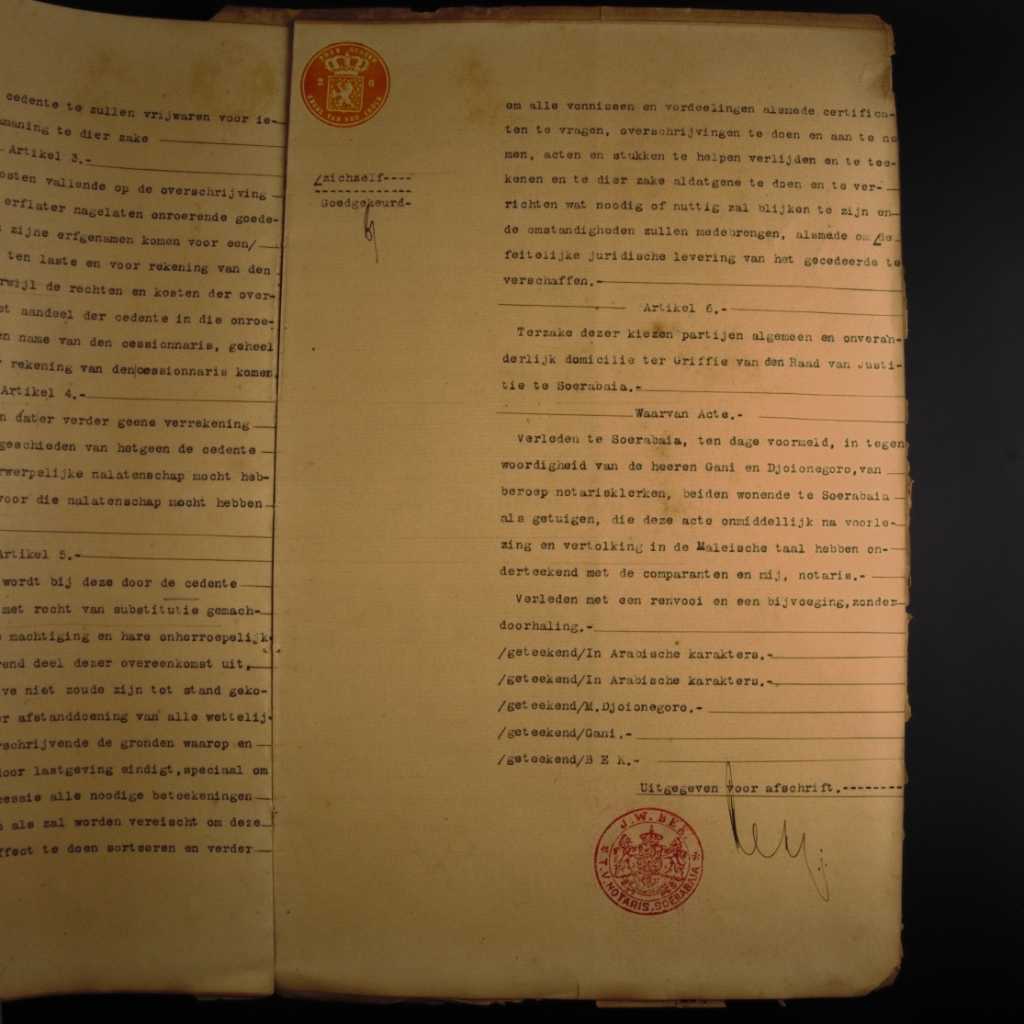 cedente te zullen vrijwaren voor ie-
maning te dier zake
Artikel 3.-
osten vallende op de overschrijving
erflater nagelaten onroerende goede-
zijne erfgenamen komen voor een/
ten laste en voor rekening van den
rwijl de rechten en kosten der over-
et aandeel der cedente in die onroe-
en name van den cessionnaris, geheel
rekening van den cessionnaris komen
Artikel 4.-
n dater verder geene verrekening
geschieden van hetgeen de cedente
rwerpelijke nalatenschap mocht heb-
voor die nalatenschap mocht hebben
Artikel 5.-
wordt bij deze door de cedente
met recht van substitutie gemach-
machtiging en hare onherroepelijk
rend deel dezer overeenkomst uit,
ve niet zoude zijn tot stand geko-
er afstanddoening van alle wettelij-
rschrijvende de gronden waarop en
door lastgeving eindigt,speciaal om
cessie alle noodige beteekeningen
als zal worden vereischt om deze
ffect te doen sorteeren en verder
zichzelf----
Goedgekeurd-
om alle vonnissen en vordeelingen alsmede certifica-
ten te vragen, overschrijvingen te doen en aan te ne
men, acten en stukken te helpen verlijden en te tee-
kenen en te dier zake aldatgene te doen en te ver-
richten wat noodig of nuttig zal blijken te zijn en
de omstandigheden zullen medebrengen, alsmede om de
feitelijke juridische levering van het gecedeerde te
verschaffen.-
Artikel 6.-
Terzake dezer kiezen partijen algemeen en onveran-
derlijk domicilie ter Griffie van den Raad van Justi-
tie te Soerabaia.-
Waarvan Acte.-
Verleden te Soerabaia, ten dage voormeld, in tegen
woordigheid van de heeren Gani en Djoionegoro,van
beroep notarisklerken, beiden wonende te Soerabaia
als getuigen, die deze acte onmiddellijk na voorle-
zing en vertolking in de Maleische taal hebben on-
derteekend met de comparanten en mij, notaris.-
Verleden met een renvooi en een bijvoeging,zonder
doorhaling.-
/geteekend/In Arabische karakters.-
/geteekend/In Arabische karakters.-
/geteekend/M.Djoionegoro.-
/geteekend/Gani.-
/geteekend/B E K.-
Uitgegeven voor afschrift.--------
J.W. BEK.
T.V. NOTARIS. SOERABAIA